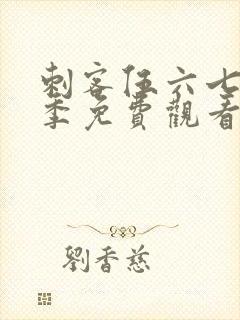 刺客伍六七
季免費觀看
劉香慈